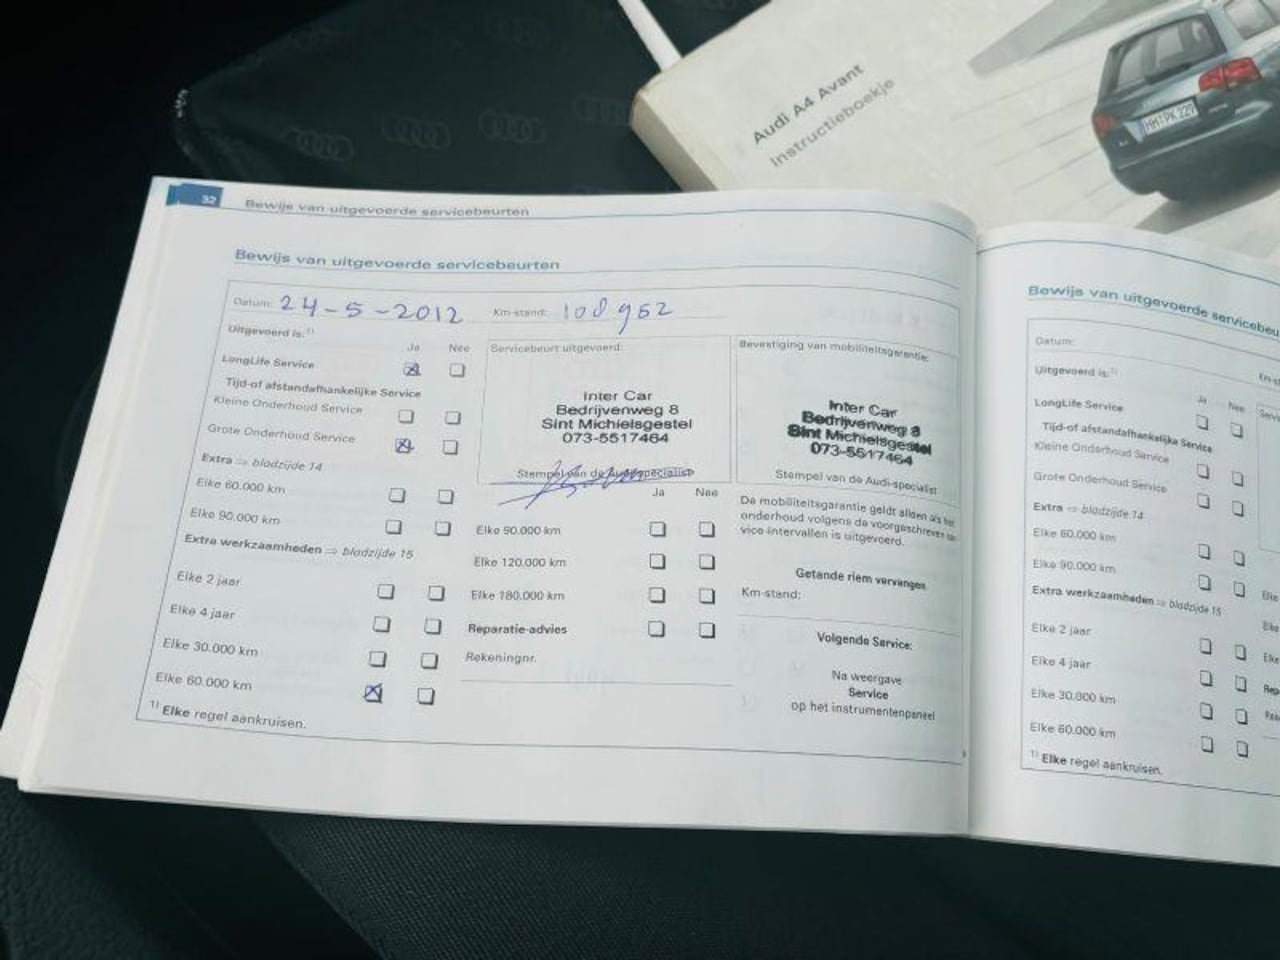 Audi A4 Avant
Instructieboekje
HH:PK 229
32
Bewijs van uitgevoerde servicebeurten
Bewijs van uitgevoerde servicebeurten
Datum: 24-5-2012 Km-stand: 108962
Uitgevoerd is: 1)
Ja Nee
LongLife Service
Tijd-of afstandafhankelijke Service
Kleine Onderhoud Service
Grote Onderhoud Service
Extra ⇒ bladzijde 14
Elke 60.000 km
Elke 90.000 km
Extra werkzaamheden ⇒ bladzijde 15
Elke 2 jaar
Elke 4 jaar
Elke 30.000 km
Elke 60.000 km
1) Elke regel aankruisen.
Servicebeurt uitgevoerd:
Inter Car
Bedrijvenweg 8
Sint Michielsgestel
073-5517464
Stempel van de Audi-specialist
Ja Nee
Elke 90.000 km
Elke 120.000 km
Elke 180.000 km
Reparatie-advies
Rekeningnr.
Bevestiging van mobiliteitsgarantie:
Inter Car
Bedrijvenweg 8
Sint Michielsgestel
073-5517464
Stempel van de Audi-specialist
De mobiliteitsgarantie geldt alleen als het
onderhoud volgens de voorgeschreven
vice-intervallen is uitgevoerd.
Getande riem vervangen
Km-stand:
Volgende Service:
Na weergave
Service
op het instrumentenpaneel
Bewijs van uitgevoerde servicebeu
Datum:
Uitgevoerd is: 1)
Ja Nee
LongLife Service
Tijd-of afstandafhankelijke Service
Kleine Onderhoud Service
Grote Onderhoud Service
Extra ⇒ bladzijde 14
Elke 60.000 km
Elke 90.000 km
Extra werkzaamheden ⇒ bladzijde 15
Elke 2 jaar
Elke 4 jaar
Elke 30.000 km
Elke 60.000 km
1) Elke regel aankruisen.
Elke